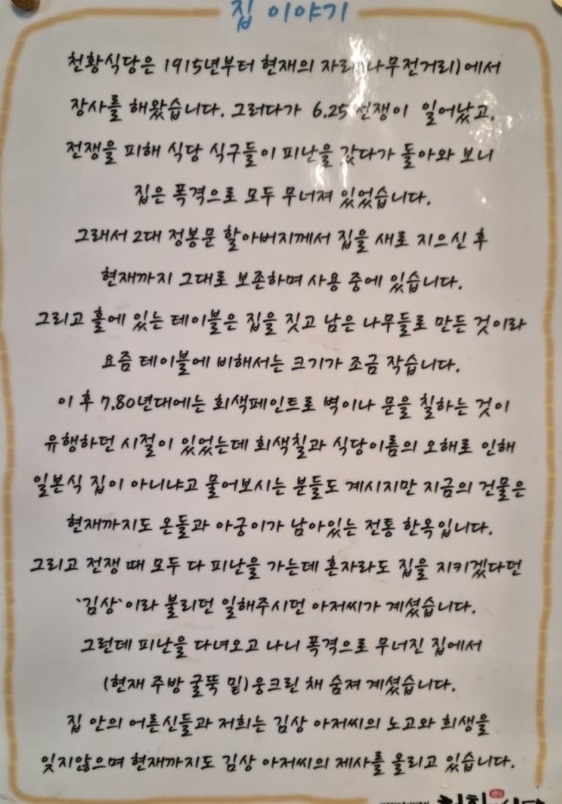 집 이야기
천황식당은 1915년부터 현재의 자리(나무전거리)에서
장사를 해왔습니다. 그러다가 6.25 전쟁이 일어났고,
전쟁을 피해 식당 식구들이 피난을 갔다가 돌아와 보니
집은 폭격으로 모두 무너져 있었습니다.
그래서 2대 정봉문 할아버지께서 집을 새로 지으신 후
현재까지 그대로 보존하며 사용 중에 있습니다.
그리고 홀에 있는 테이블은 집을 짓고 남은 나무들로 만든 것이라
요즘 테이블에 비해서는 크기가 조금 작습니다.
이 후 7,80년대에는 회색페인트로 벽이나 문을 칠하는 것이
유행하던 시절이 있었는데 회색칠과 식당이름의 오해로 인해
일본식 집이 아니냐고 물어보시는 분들도 계시지만 지금의 건물은
현재까지도 온돌과 아궁이가 남아있는 전통 한옥입니다.
그리고 전쟁 때 모두 다 피난을 가는데 혼자라도 집을 지키겠다던
'김상'이라 불리던 일해주시던 아저씨가 계셨습니다.
그런데 피난을 다녀오고 나니 폭격으로 무너진 집에서
(현재 주방 굴뚝 밑)웅크린 채 숨져 계셨습니다.
집 안의 어른신들과 저희는 김상 아저씨의 노고와 희생을
잊지않으며 현재까지도 김상 아저씨의 제사를 올리고 있습니다.